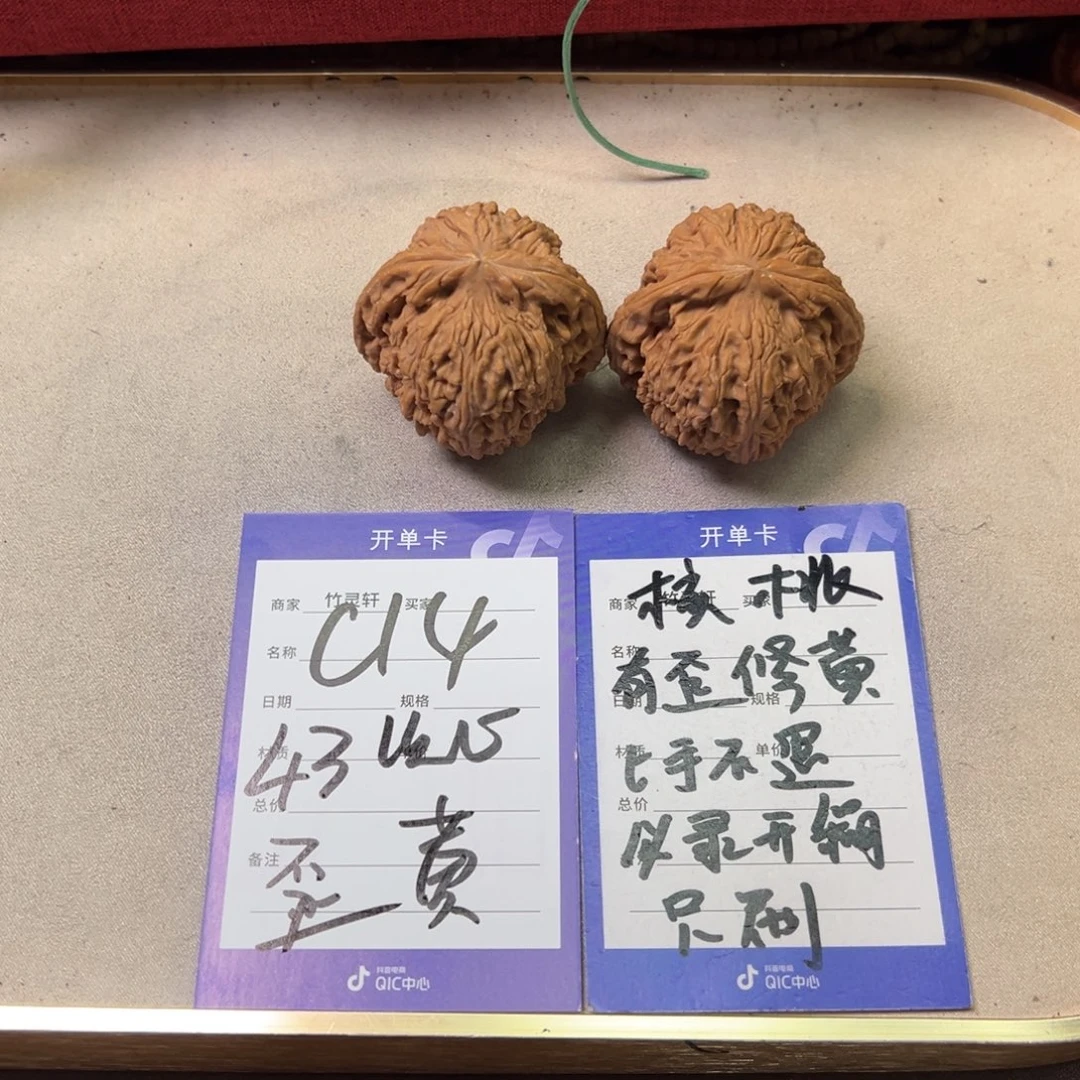 开单卡
商家 竹灵轩 买家
C14
名称
日期 规格
材质 单价
43
总价
备注 歪 黄
抖音电商
QIC中心
开单卡
核桃
商家 竹灵轩 买家
名称
有歪修黄
日期 规格
材质 单价
上手不退
总价
必录开箱
只刷
抖音电商
QIC中心